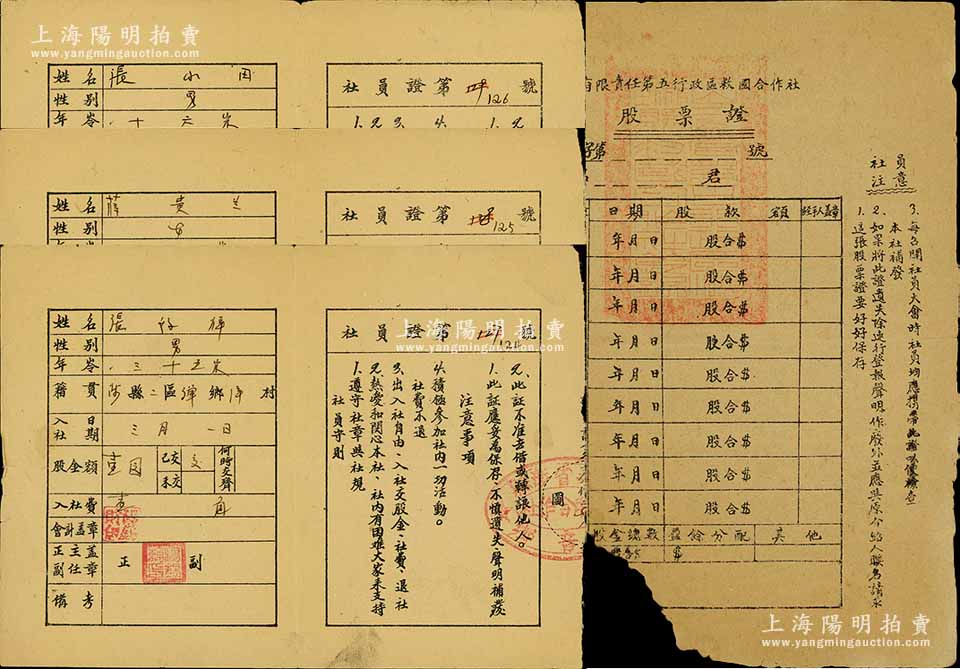 上海陽明拍賣
www.yangmingauction.com
姓名 張
性別 男
年岺 十六
社員證第 號
126
姓名
性別
社員證第 號
125
姓名 張
性別 男
年岺 三十五
籍貫 縣二區 鄉 村
入社日期 三月一日
股金額 壹圓 已交 未交 何時交齊
入社費 角
會計盖章
正副主任盖章 正 副
備考
社員證第 號
社員守則
1.遵守社章與社規
2.熱愛和関心本社、社内有困难大家来支持
3.出入社自由、入社交股金、社費、退社
社費不退
4.積極参加社内一切活動。
注意事項
1.此証應妥為保存、不慎遺失、聲明補發
2.此証不准去借或轉讓他人。
圖
有限責任第五行政區救國合作社
股票證
字第 號
君
日期 股款額 經手人盖章
年月日 股合幣
年月日 股合幣
年月日 股合幣
年月日 股合幣
年月日 股合幣
年月日 股合幣
年月日 股合幣
年月日 股合幣
年月日 股合幣
股金總数 盈餘分配 其他
社員注意
1.這張股票證要好好保存
2.如果將此證遺失除進行登報聲明作廢外並應與原介紹人聯名請求
本社補發
3.每召開社員大會時社員均應攜帶此證以便檢查
上海陽明拍賣
www.yangmingauction.com
上海陽明拍賣
www.yangmingauction.com